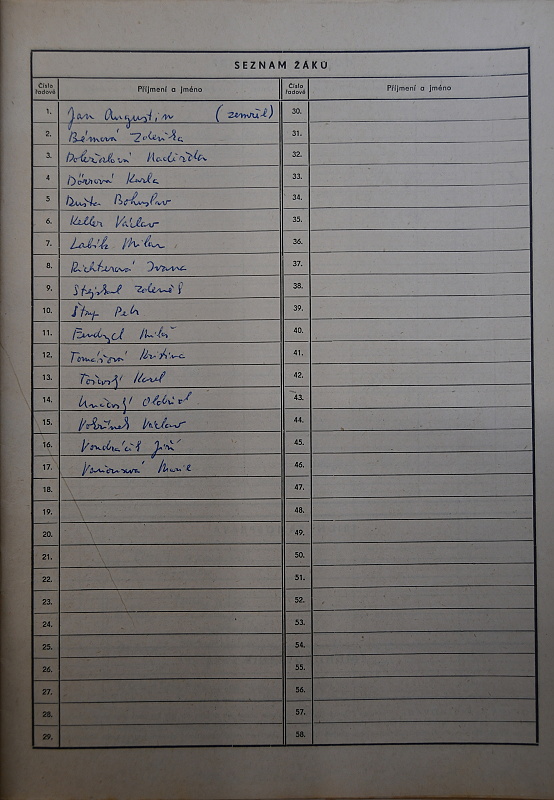 SEZNAM ŽÁKŮ
Číslo řadové Příjmení a jméno
1. Jan Augustin (zemřel)
2. Bémová Zdenka
3. Doležalová Naděžda
4 Dörrová Karla
5 Dušta Bohuslav
6. Keller Václav
7. Labík Milan
8. Richterová Ivana
9. Stejskal Zdeněk
10. Štup Petr
11. Fendrych Miloš
12. Tomášová Kristina
13. Karel
14. Oldřich
15. Václav
16. Vondráček Jiří
17. Marie
18.
19.
20.
21.
22.
23.
24.
25.
26.
27.
28.
29.
Číslo řadové Příjmení a jméno
30.
31.
32.
33.
34.
35.
36.
37.
38.
39.
40.
41.
42.
43.
44.
45.
46.
47.
48.
49.
50.
51.
52.
53.
54.
55.
56.
57.
58.